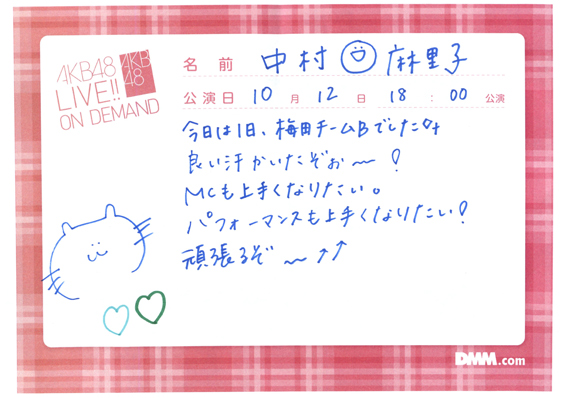 AKB48
LIVE!!
ON DEMAND
AKB
48
名前 中村 麻里子
公演日 10 月 12 日 18 : 00 公演
今日は1日、梅田チームBでした
良い汗かいたぞぉ〜!
MCも上手くなりたい。
パフォーマンスも上手くなりたい!
頑張るぞ〜↑↑
DMM.com